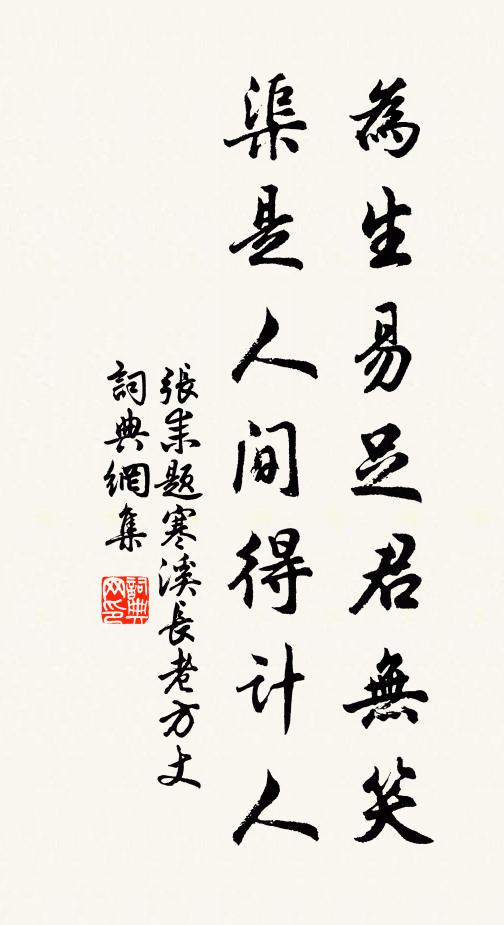 為生易足君無笑
渠是人间得计人
張耒题寒溪長老方丈
詞典網集
詞典
网印